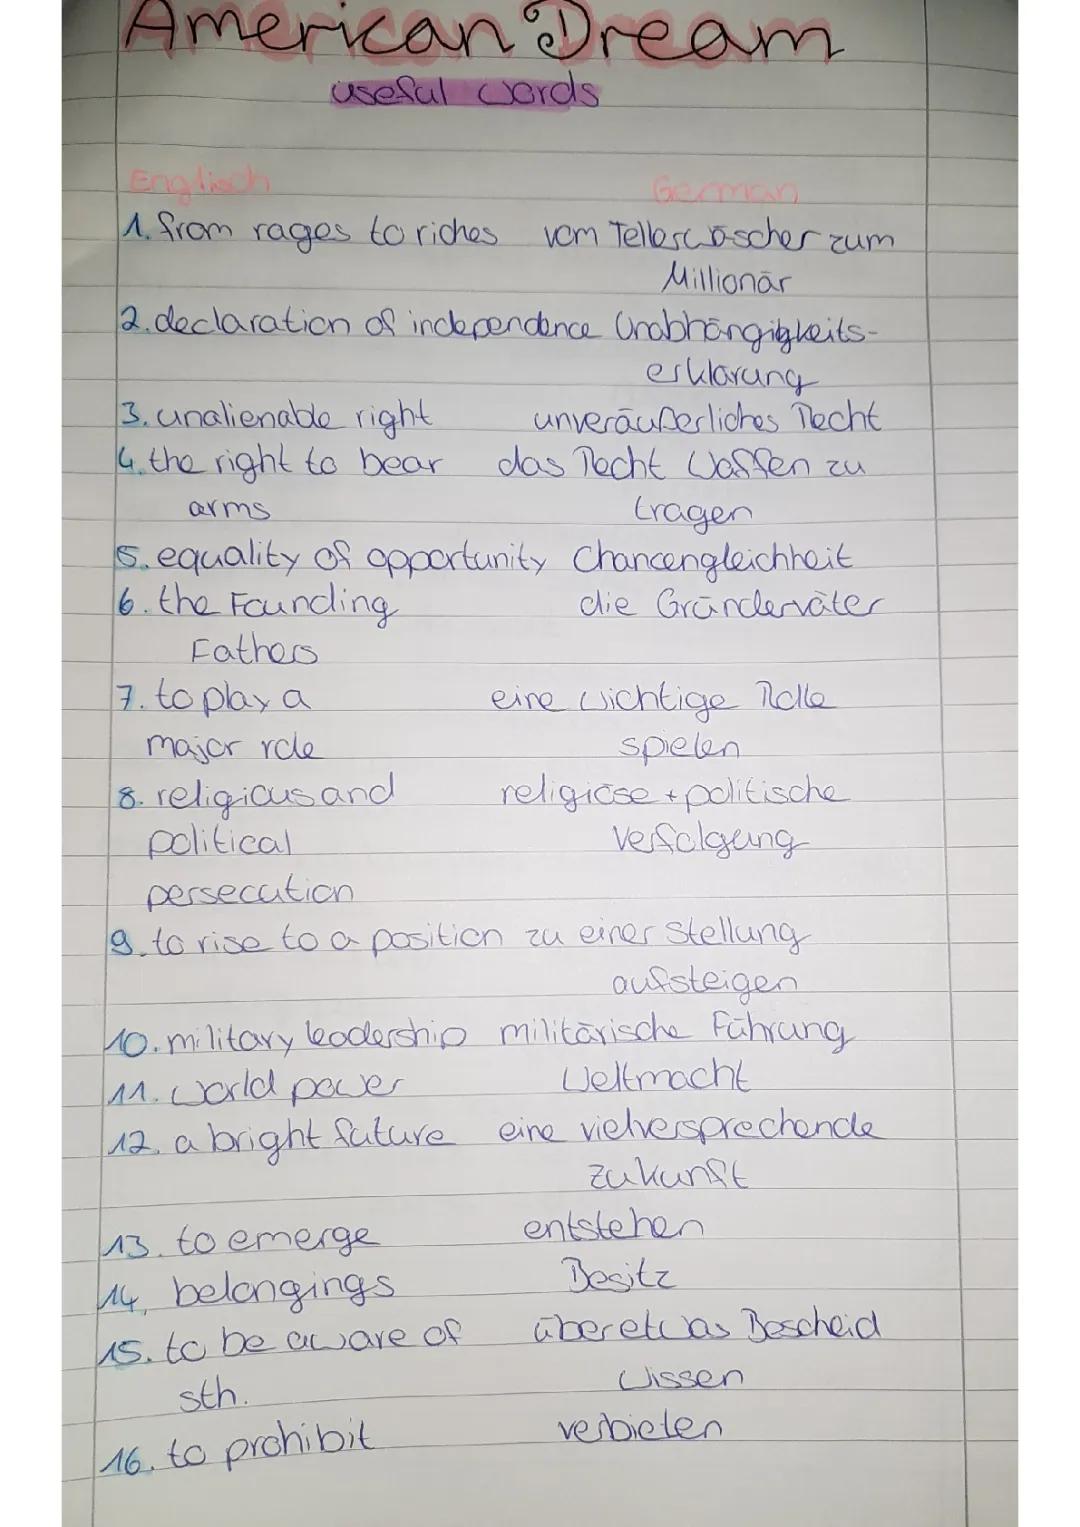 American Dream
useful words
Englisch German
1. from rages to riches vom Tellerwäscher zum
Millionär
2. declaration of independence Unabhängigkeits-
erklärung
3. unalienable right unveräußerliches Recht
4. the right to bear das Recht Waffen zu
arms tragen
5. equality of opportunity Chancengleichheit
6. the Founding die Gründerväter
Fathers
7. to play a eine wichtige Rolle
major role spielen
8. religious and religiöse + politische
political Verfolgung
persecution
9. to rise to a position zu einer Stellung
aufsteigen
10. military leadership militärische Führung
11. world power Weltmacht
12. a bright future eine vielversprechende
Zukunft
13. to emerge entstehen
14. belongings Besitz
15. to be aware of über etwas Bescheid
sth. wissen
16. to prohibit verbieten